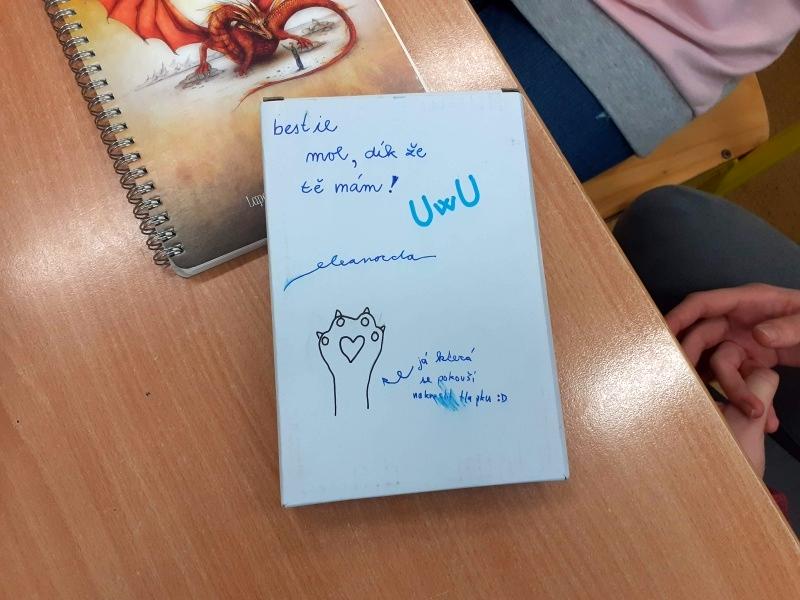 bestie
mol, dík že
tě mám!
UwU
eleanorda
já která
se pokouší
nakreslit tlapku :D